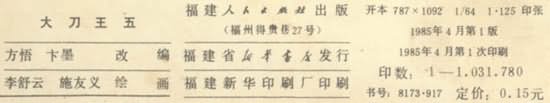 大刀王五
方悟 卞墨 改编
李舒云 施友义 绘画
福建人民出版社出版
(福州得贵巷27号)
福建省新华书店发行
福建新华印刷厂印刷
开本 787×1092 1/64 1·125印张
1985年4月第1版
1985年4月第1次印刷
印数：1—1.031.780
书号：8173·917 定价：0.15元